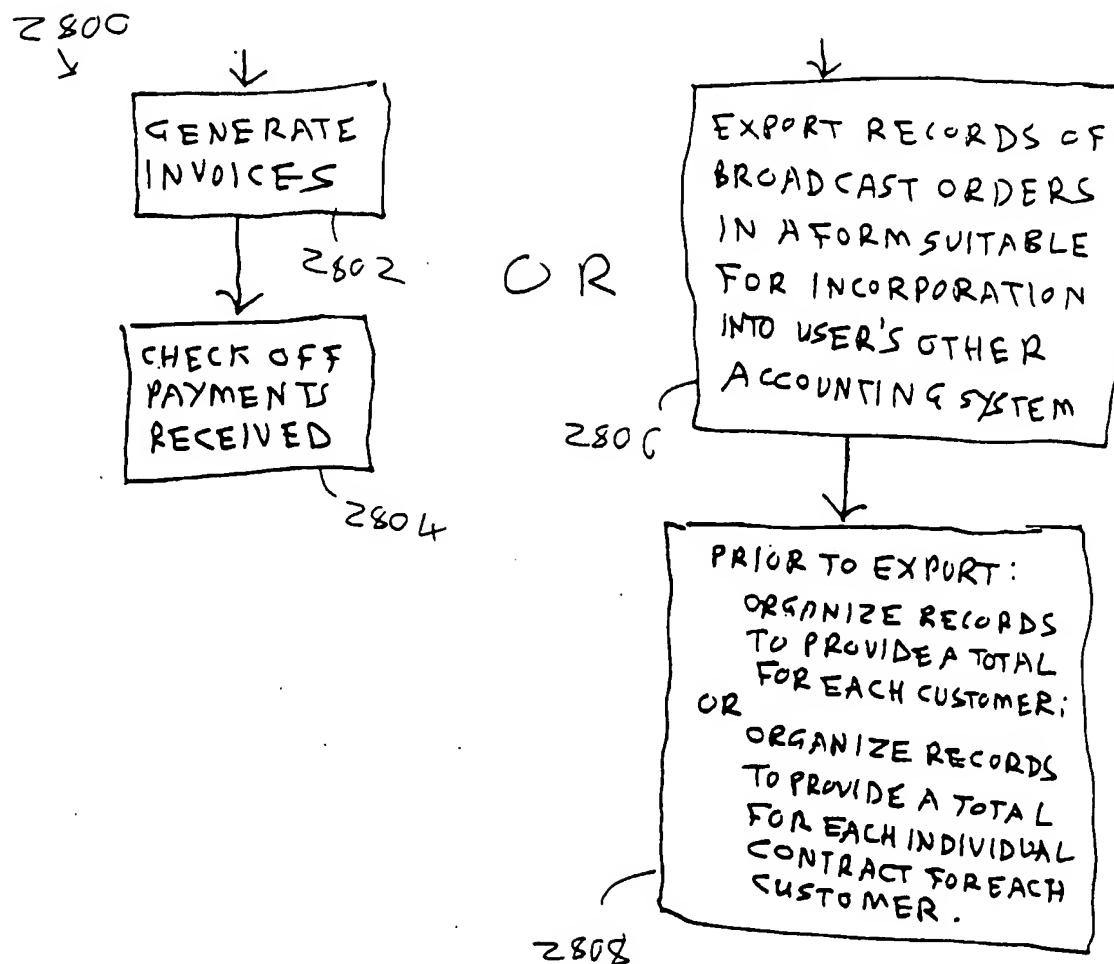 2800
GENERATE
INVOICES
2802
CHECK OFF
PAYMENTS
RECEIVED
2804
OR
EXPORT RECORDS OF
BROADCAST ORDERS
IN A FORM SUITABLE
FOR INCORPORATION
INTO USER'S OTHER
ACCOUNTING SYSTEM
2806
PRIOR TO EXPORT:
ORGANIZE RECORDS
TO PROVIDE A TOTAL
FOR EACH CUSTOMER;
OR
ORGANIZE RECORDS
TO PROVIDE A TOTAL
FOR EACH INDIVIDUAL
CONTRACT FOR EACH
CUSTOMER.
2808